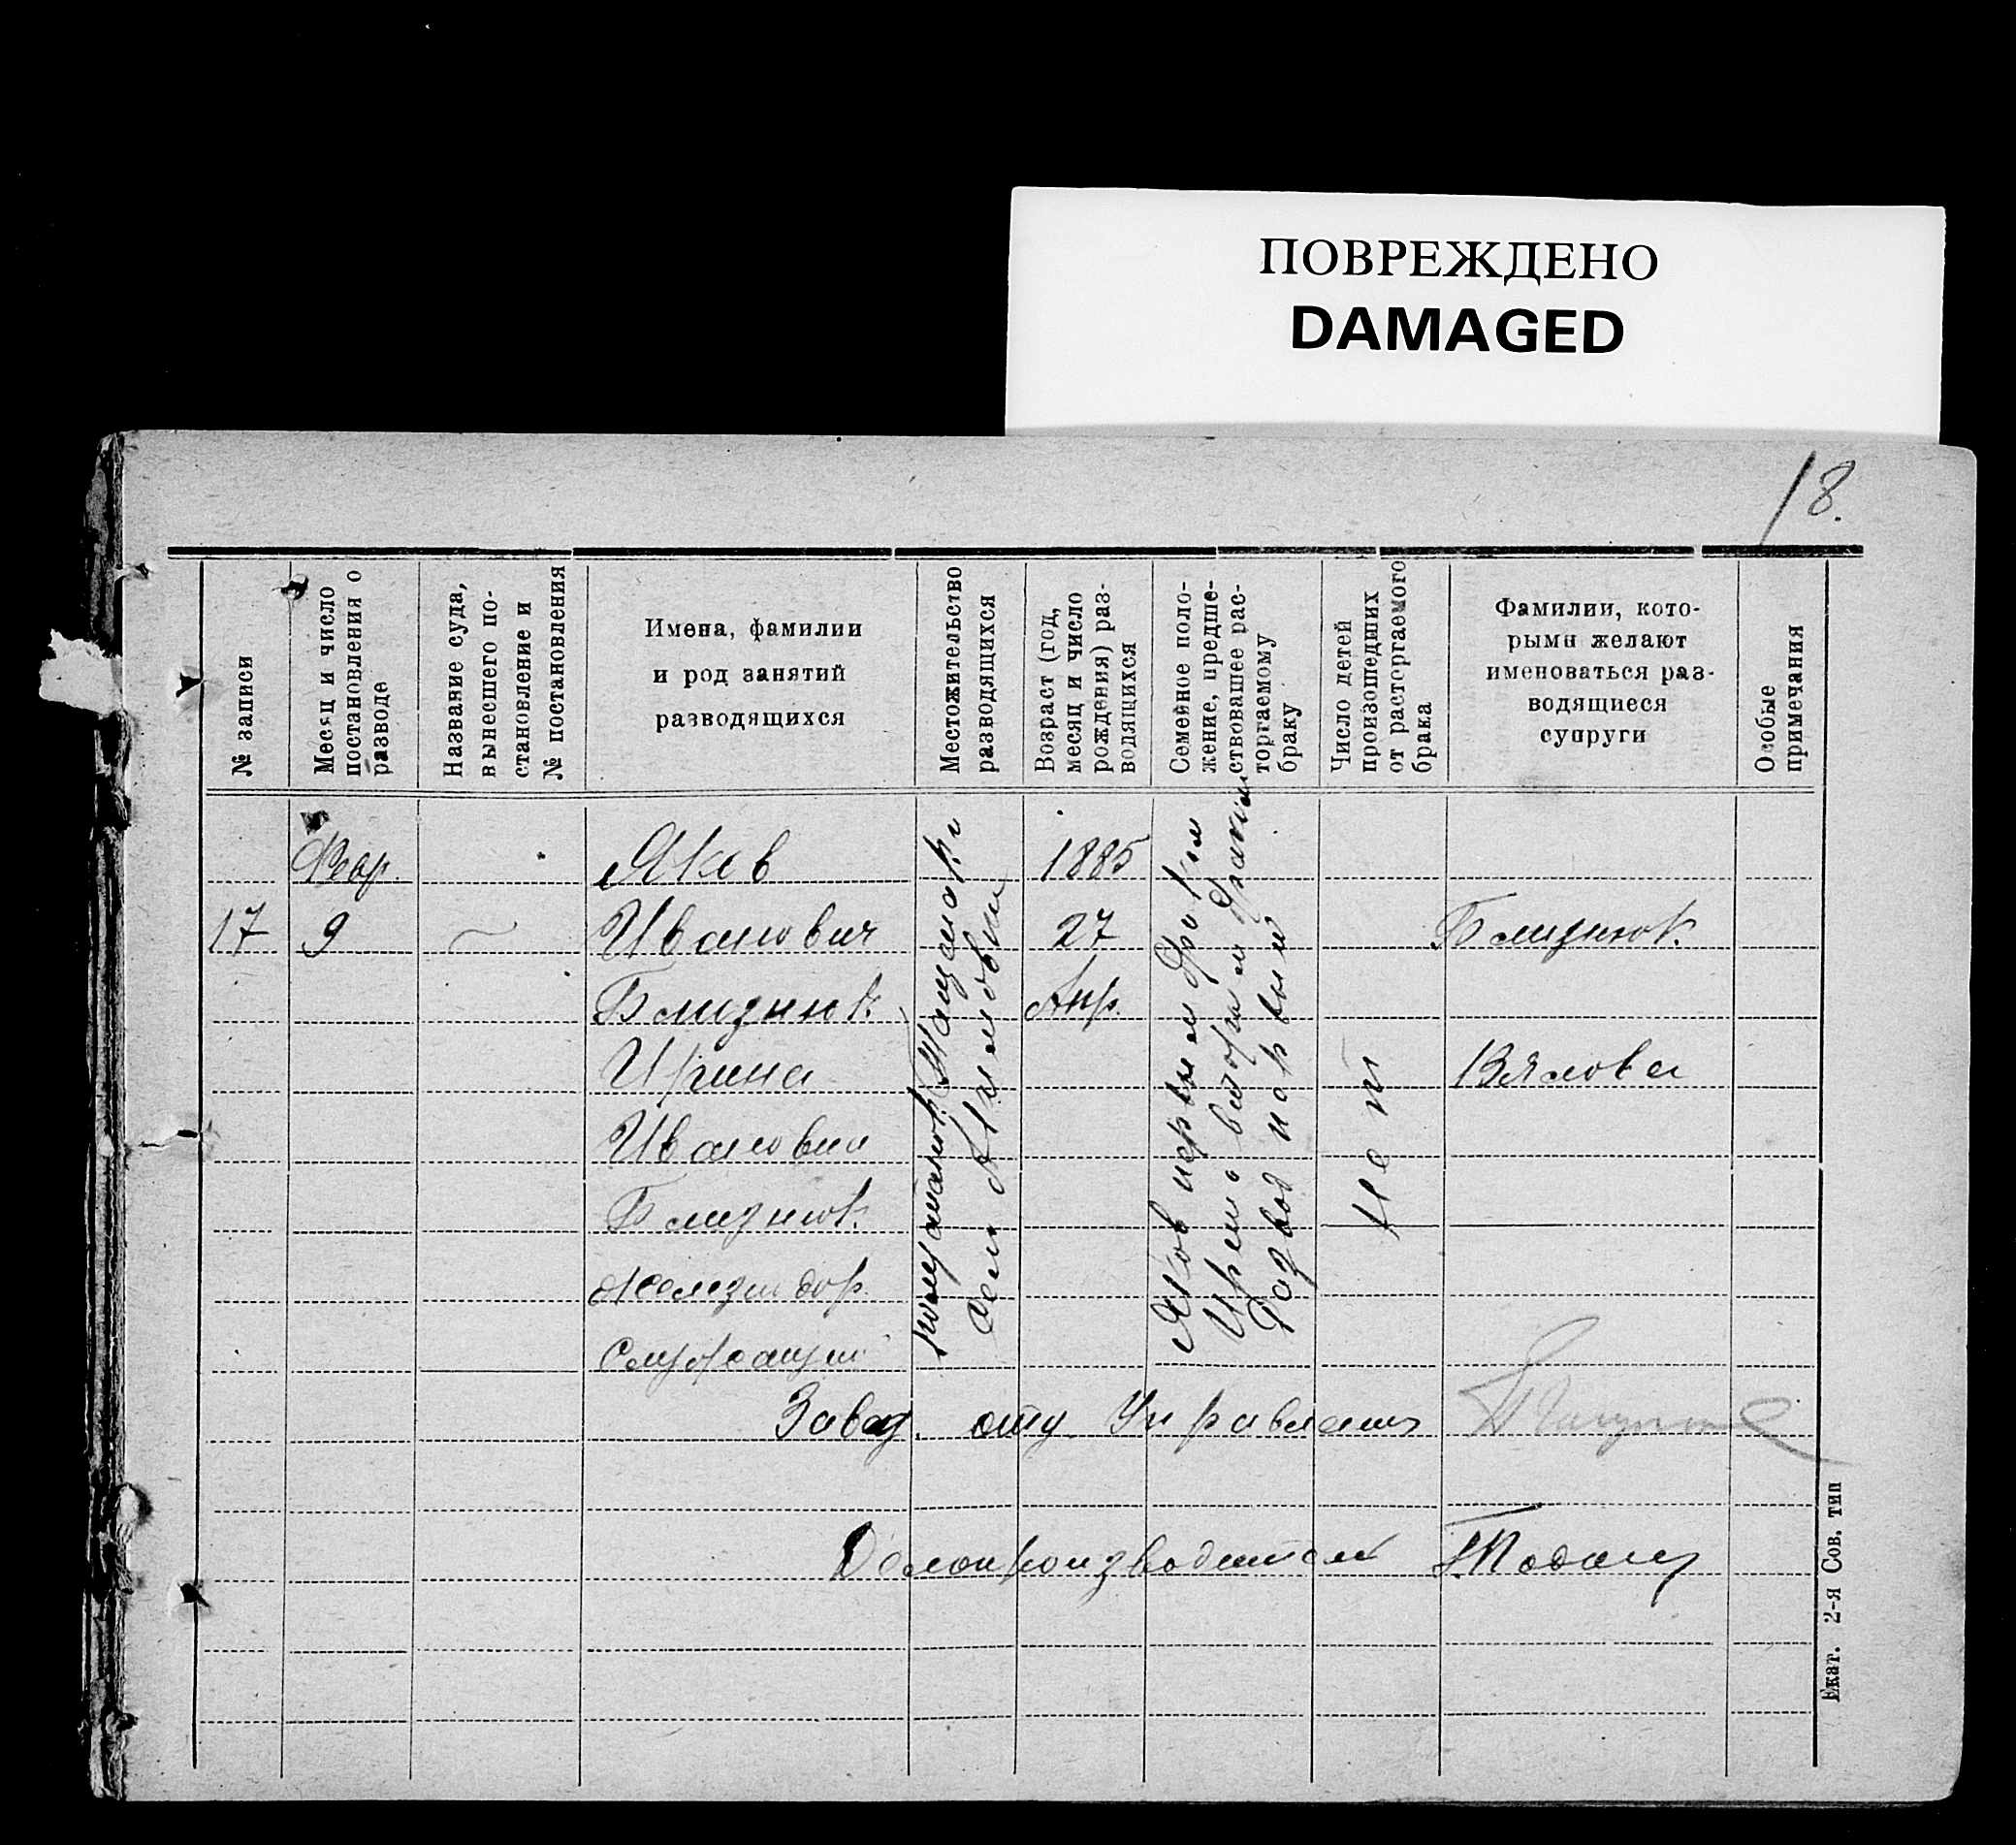 ПОВРЕЖДЕНО
DAMAGED
18.
№ записи
Месяц и число
постановления о
разводе
Название суда,
вынесшего по-
становление и
№ постановления
Имена, фамилии
и род занятий
разводящихся
Местожительство
разводящихся
Возраст (год,
месяц и число
рождения) раз-
водящихся
Семейное поло-
жение, предше-
ствовавшее рас-
торгаемому
браку
Число детей
происшедших
от расторгаемого
брака
Фамилии, кото-
рыми желают
именоваться раз-
водящиеся
супруги
Особые
примечания
Февр.
17
9
Яков
Иванович
Близнюк
Ирина
Ивановна
Близнюк
Железнодор.
Служащий
1885
27
Апр.
Яков первым браком
Ирина вторым браком
Развод первый
Нет
Близнюк
Вялова
Завед. отд Управления
Делопроизводитель
Екат. 2-я Сов. тип